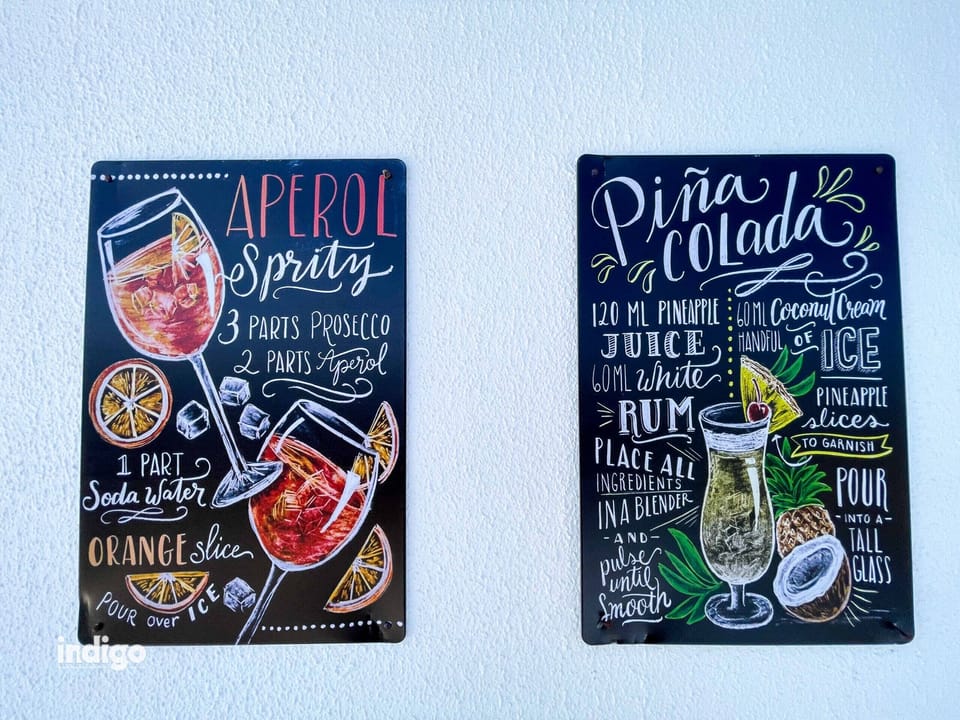 APEROL
Sprity
3 PARTS PROSECCO
2 PARTS Aperol
1 PART
Soda Water
ORANGE slice
POUR over ICE
Piña
COLada
120 ML PINEAPPLE
JUICE
60ML White
RUM
PLACE ALL
INGREDIENTS
IN A BLENDER
- AND -
pulse
until
smooth
60ML Coconut Cream
HANDFUL OF ICE
PINEAPPLE
slices
TO GARNISH
POUR
- INTO A -
TALL
GLASS
indigo